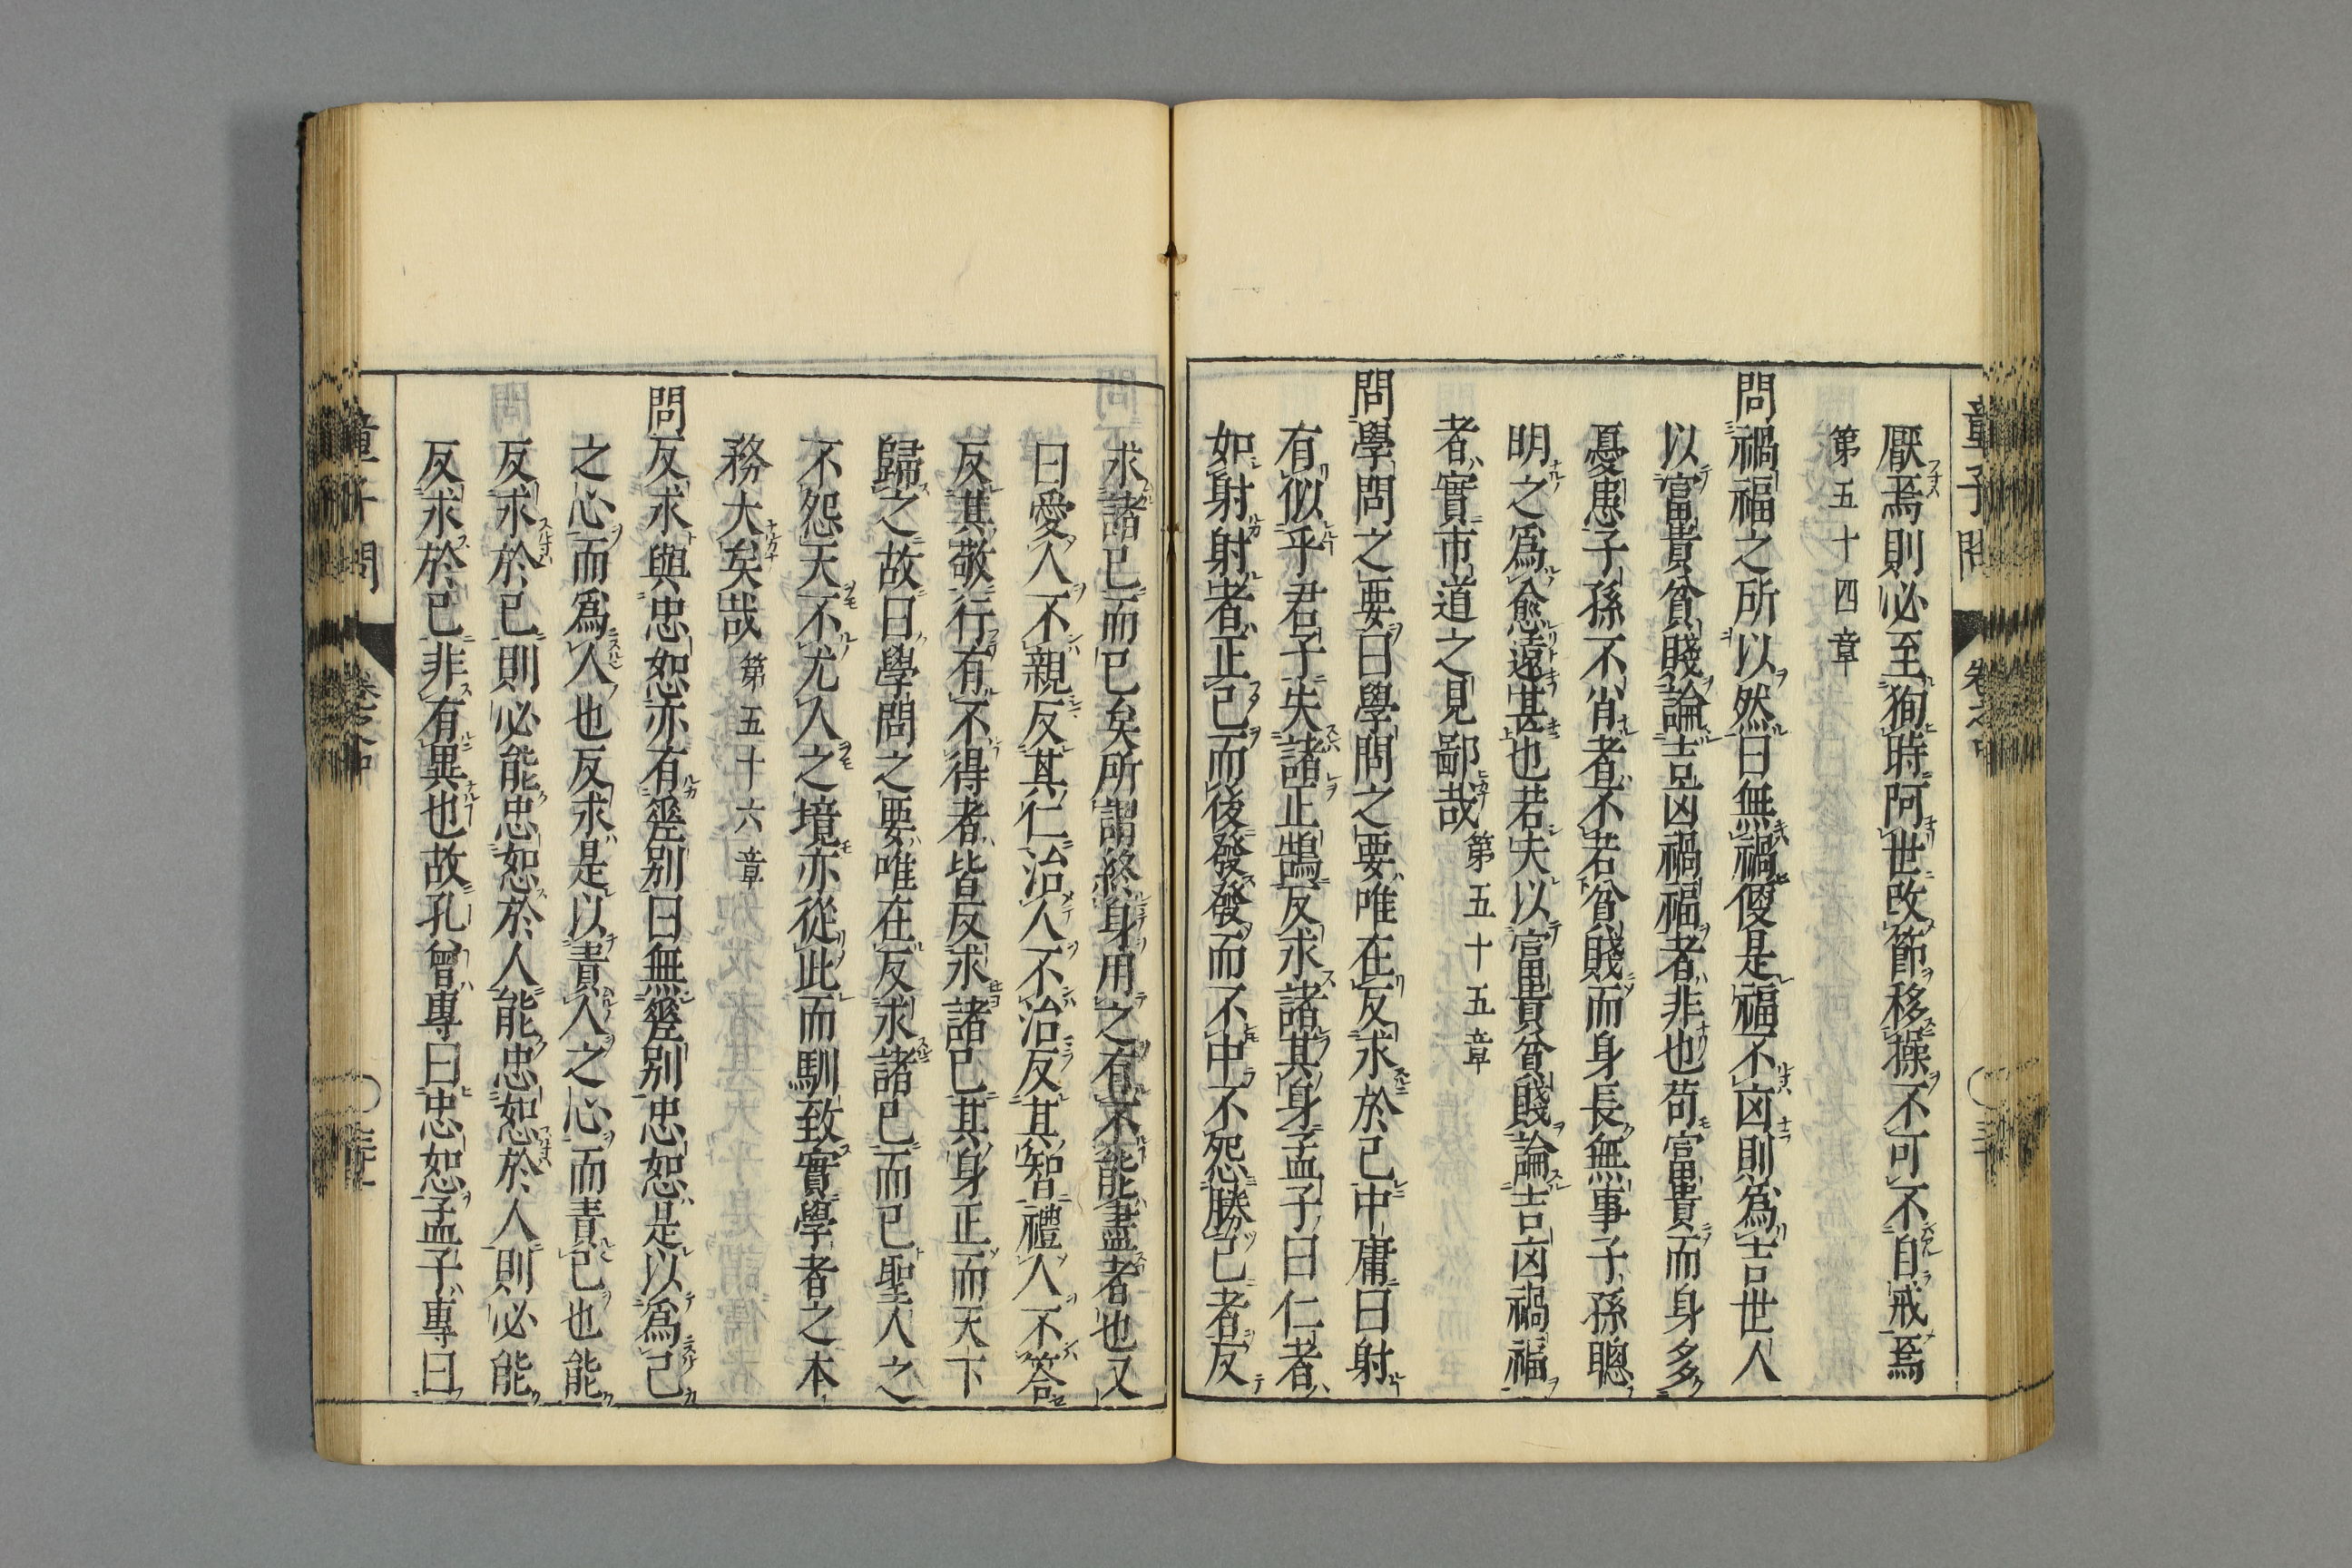 童子問 卷之中
厭焉則必至狥時阿世改節移操不可不自戒焉
第五十四章
問禍福之所以然曰無禍傻是福不凶則爲吉世人
以富貴貧賤論吉凶禍福者非也苟富貴而身多
憂患子孫不肖者不若貧賤而身長無事子孫聰
明之爲愈遠甚也若夫以富貴貧賤論吉凶禍福
者實市道之見鄙哉 第五十五章
問學問之要曰學問之要唯在反求於己中庸曰射
有似乎君子失諸正鵠反求諸其身孟子曰仁者
如射射者正己而後發發而不中不怨勝己者反
求諸己而已矣所謂終身用之有不能盡者也又
曰愛人不親反其仁治人不治反其智禮人不答
反其敬行有不得者皆反求諸己其身正而天下
歸之故曰學問之要唯在反求諸己而已聖人之
不怨天不尤人之境亦從此而馴致實學者之本
務大矣哉 第五十六章
問反求與忠恕亦有差別曰無差別忠恕是以爲己
之心而爲人也反求是以責人之心而責己也能
反求於己則必能忠恕於人能忠恕於人則必能
反求於己非有異也故孔曾專曰忠恕孟子專曰
童子問 卷之中